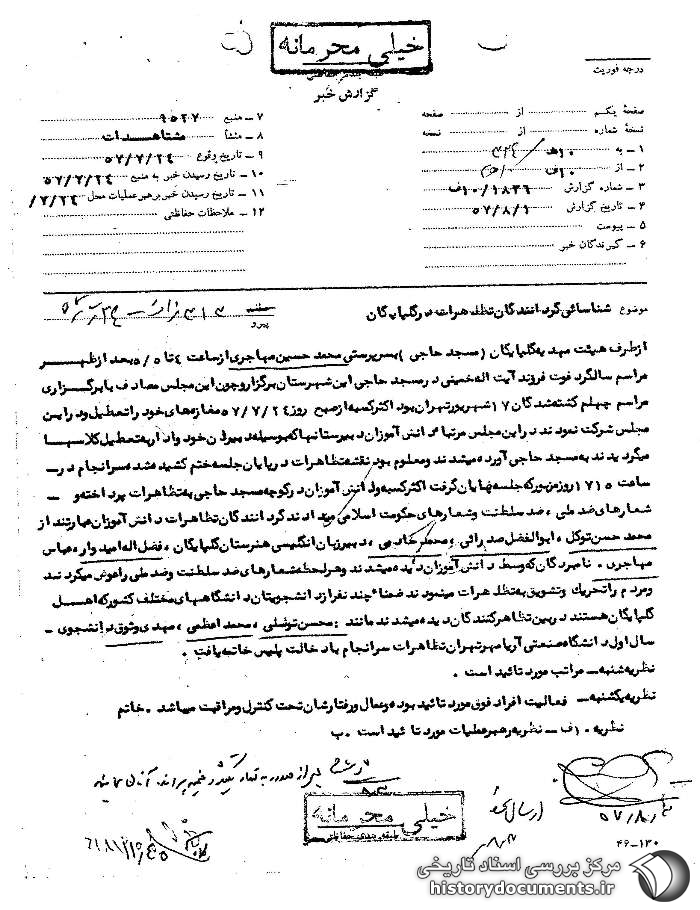 خیلی محرمانه
گزارش خبر
درجه فوریت
صفحهٔ یکم از صفحه
نسخهٔ شماره از نسخه
۱ - به ۱۰هـ
۲ - از ۱۰ف
۳ - شماره گزارش ۱۰/۱۸۳۹ف
۴ - تاریخ گزارش ۵۷/۸/۱
۵ - پیوست
۶ - گیرندگان خبر
۷ - منبع ۹۵۲۷
۸ - منشأ مشاهدات
۹ - تاریخ وقوع ۵۷/۷/۲۴
۱۰ - تاریخ رسیدن خبر به منبع ۵۷/۷/۲۴
۱۱ - تاریخ رسیدن خبر به رهبر عملیات محل ۷/۲۴/
۱۲ - ملاحظات حفاظتی
موضوع شناسائی گردانندگان تظاهرات در گلپایگان
ازطرف هیئت مهدیه گلپایگان (مسجد حاجی) بسرپرستی محمد حسین مهاجری ازساعت ۴ تا ۵/۵ بعد ازظهر
مراسم سالگرد فوت فرزند آیت اله خمینی در مسجد حاجی این شهرستان برگزار و چون این مجلس مصادف با برگزاری
مراسم چهلم کشته شدگان ۱۷ شهریور تهران بود اکثر کسبه ازصبح روز ۵۷/۷/۲۴ مغازه های خود را تعطیل و در این
مجلس شرکت نمودند در این مجلس مرتبا دانش آموزان دبیرستانها که بوسیله دبیران خود وادار به تعطیل کلاسها
میگردیدند به مسجد حاجی آورده میشدند و معلوم بود نقشه تظاهرات در پایان جلسه ختم کشیده شده سرانجام در
ساعت ۱۷۱۵ روز مزبور که جلسه پایان گرفت اکثر کسبه و دانش آموزان در کوچه مسجد حاجی به تظاهرات پرداخته و -
شعارهای ضد ملی ، ضد سلطنت و شعارهای حکومت اسلامی میدادند گردانندگان تظاهرات دانش آموزان عبارتند از
محمد حسن توکل ، ابوالفضل صدرائی ، خادمی ، دبیر زبان انگلیسی هنرستان گلپایگان ، فضل اله امیدوار ، عباس
مهاجری . نامبردگان که وسط دانش آموزان دیده میشدند و هر لحظه شعارهای ضد سلطنت و ضد ملی را عوض میکردند
و مردم را تحریک و تشویق به تظاهرات مینمودند ضمنا چند نفر از دانشجویان دانشگاههای مختلف کشور که اهل
گلپایگان هستند در بین تظاهر کنندگان دیده میشدند مانند : محسن توسلی ، محمد اعظمی ، مهدی وثوق دانشجوی -
سال اول دانشگاه صنعتی آریامهر تهران تظاهرات سرانجام با دخالت پلیس خاتمه یافت .
نظریه شنبه - مراتب مورد تائید است .
نظریه یکشنبه - فعالیت افراد فوق مورد تائید بوده و اعمال و رفتارشان تحت کنترل و مراقبت میباشد . خاتم
نظریه ۱۰ف - نظریه رهبر عملیات مورد تائید است . ب
۵۷/۸/
خیلی محرمانه
طبقه بندی حفاظتی
۴۶-۱۳۰
مرکز بررسی اسناد تاریخی
historydocuments.ir